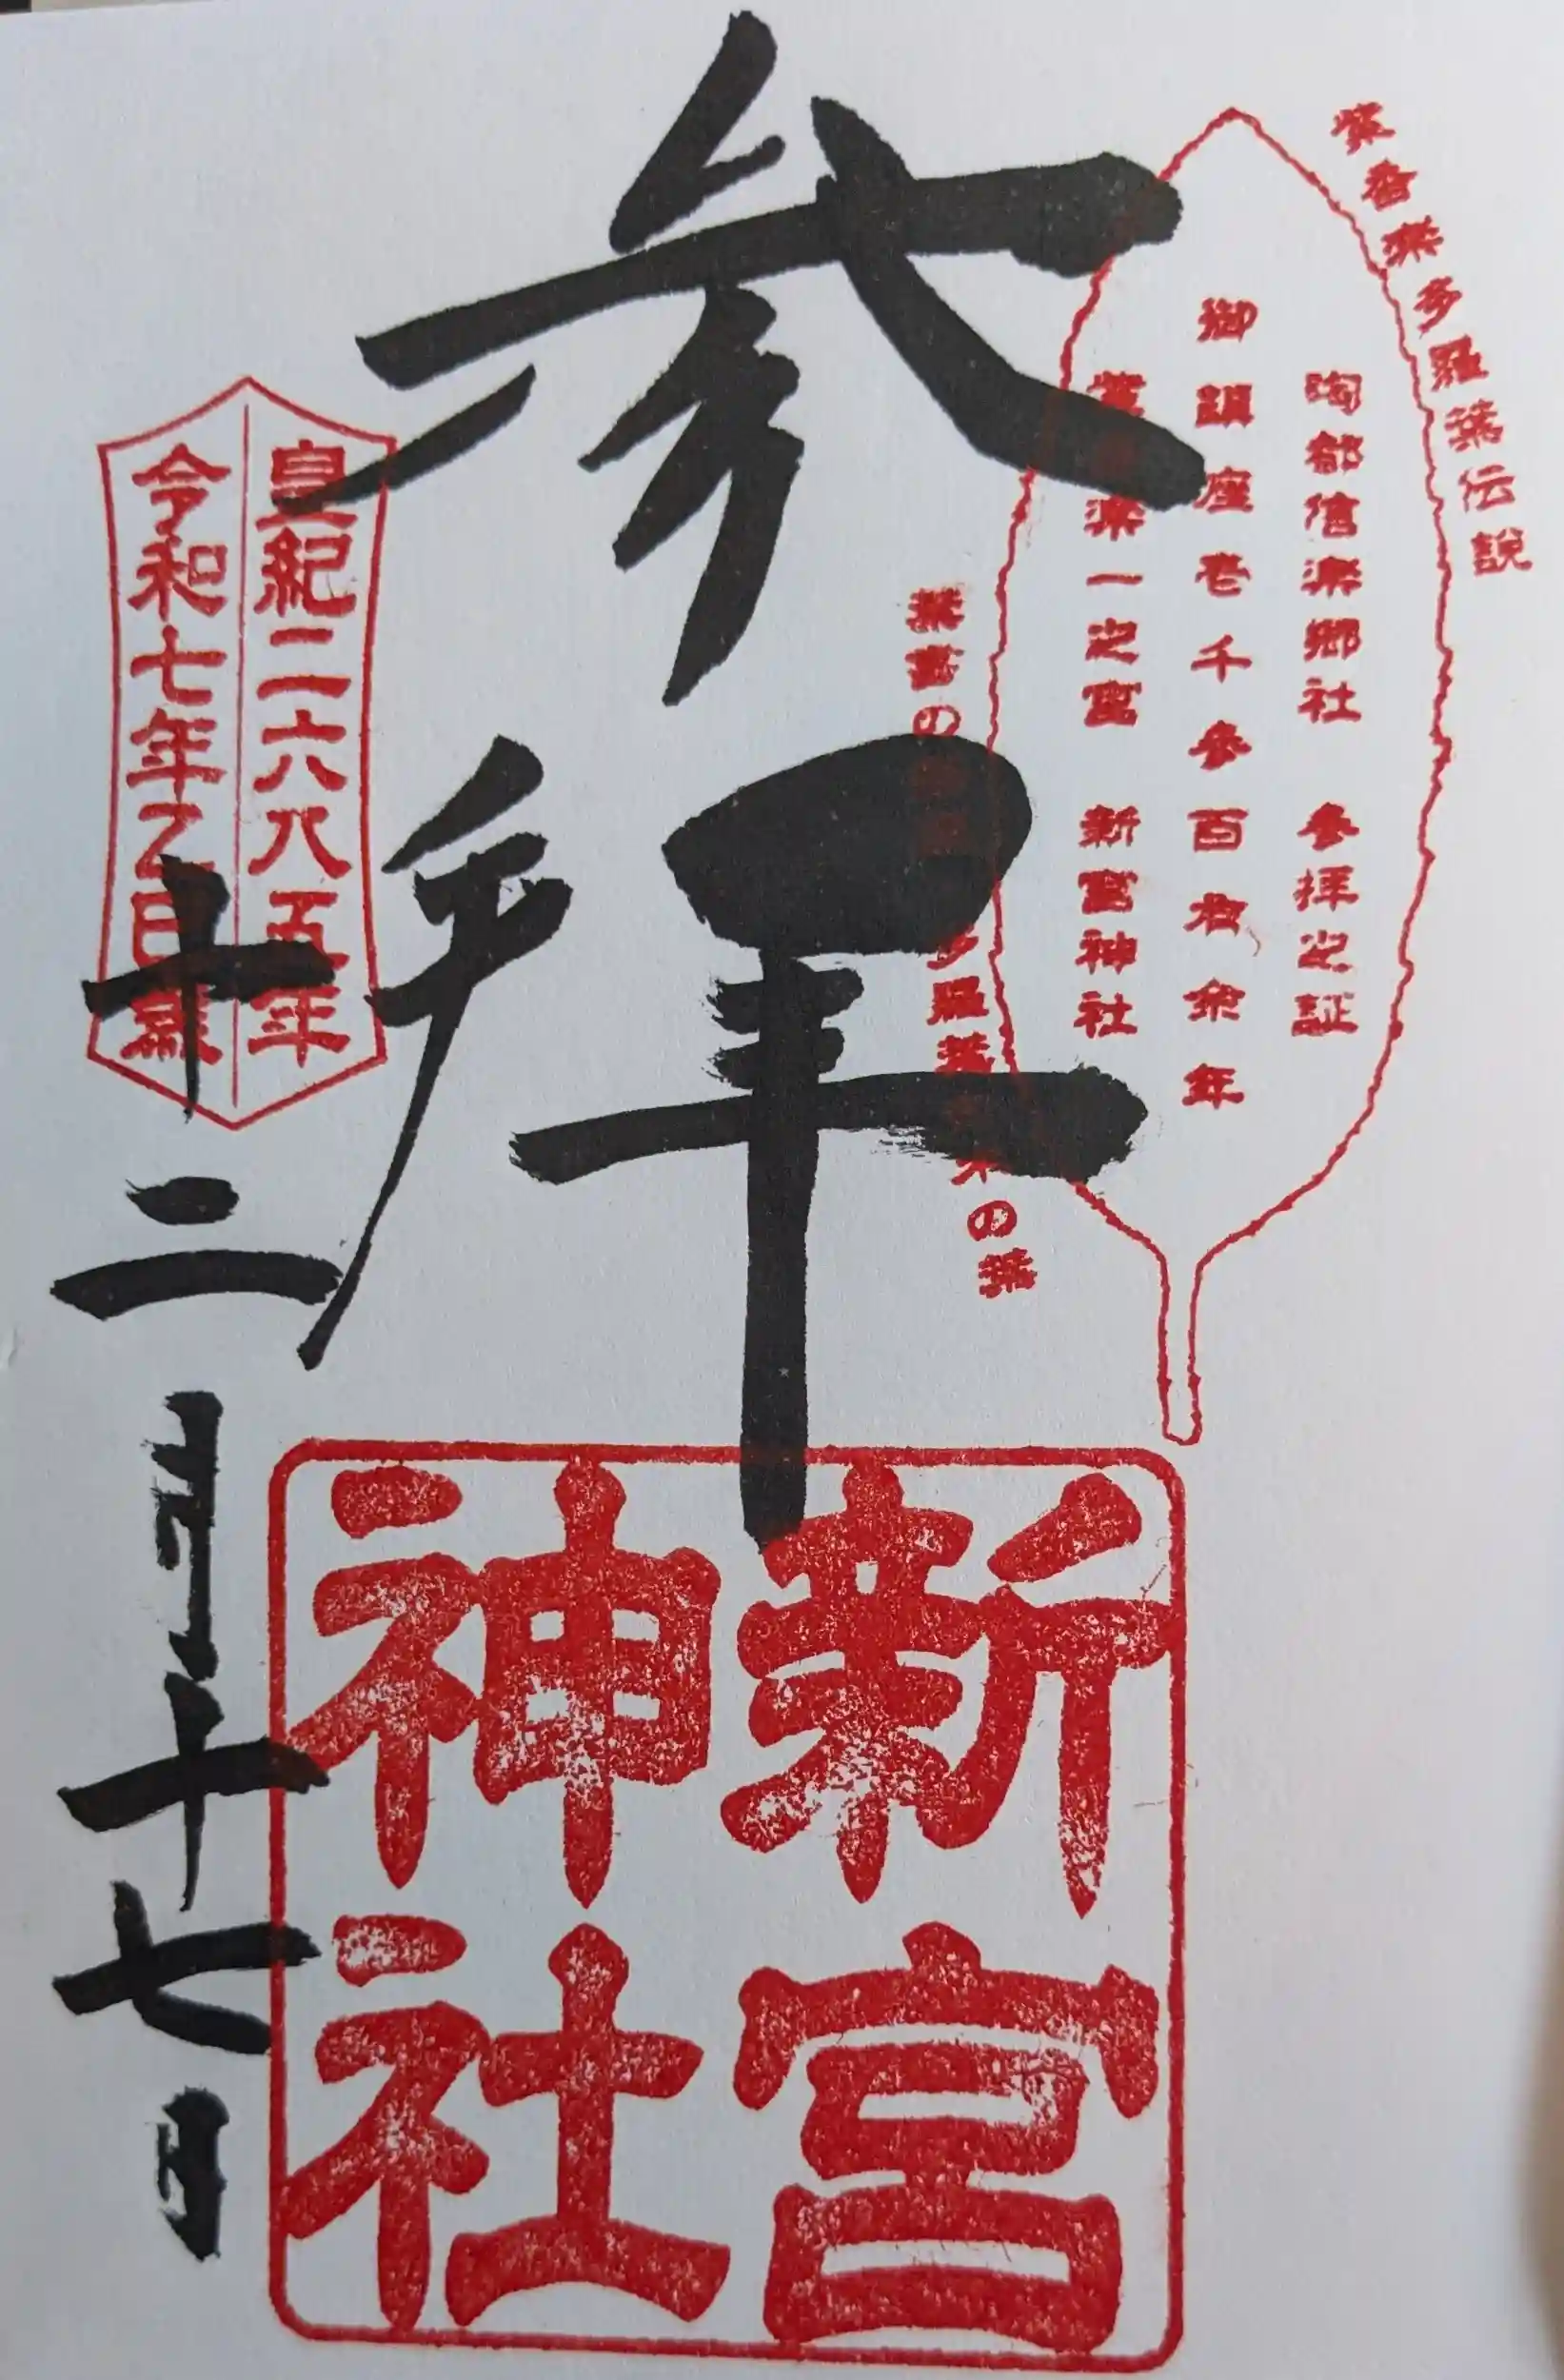 紫香楽多羅葉伝説
陶都信楽郷社 参拝之証
御鎮座壱千参百有余年
紫香楽一之宮 新宮神社
葉書の
多羅葉
木の葉
参拝
新宮神社
皇紀二六八五年
令和七年乙巳歳
十二月十七日